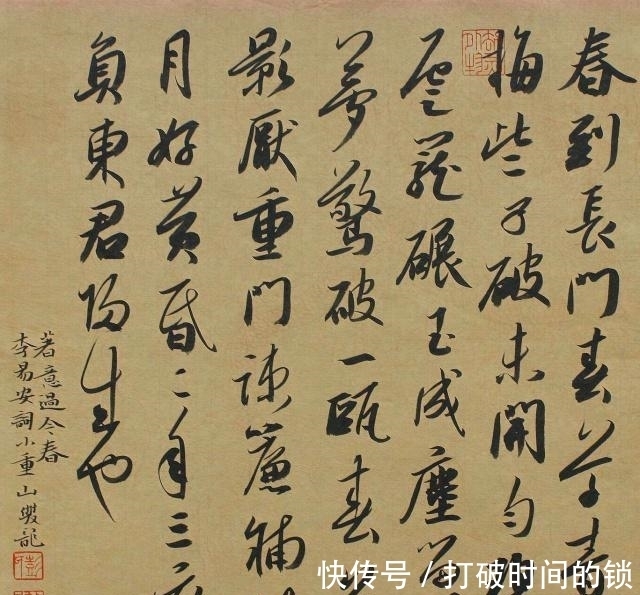 春到長門春草青
梅些子破未開勻
雲籠碾玉成塵
夢驚破一甌春
影厭重門疎簾鋪
月好黃昏二年三度
負東君歸來也
著意過今春
李易安詞小重山雙龍
快传号 / 打破时间的锁